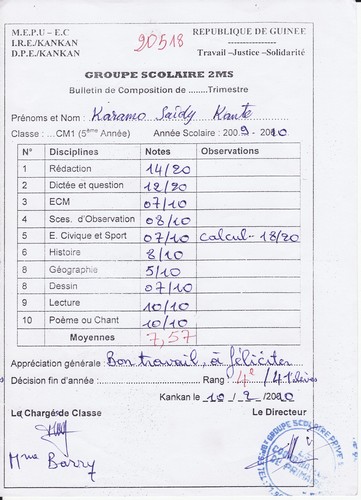 M.E.P.U – E.C REPUBLIQUE DE GUINEE
I.R.E./KANKAN
D.P.E./KANKAN Travail –Justice –Solidarité
20518
GROUPE SCOLAIRE 2MS
Bulletin de Composition de ........Trimestre
Prénoms et Nom : Karamo Saïdy Kante
Classe : ...CM1 (5ème Année) Année Scolaire : 2009 - 2010
N° Disciplines Notes Observations
1 Rédaction 14/20
2 Dictée et question 12/20
3 ECM 07/10
4 Sces. d'Observation 08/10
5 E. Civique et Sport 07/10 calcul-- 18/20
6 Histoire 8/10
8 Géographie 5/10
8 Dessin 07/10
9 Lecture 10/10
10 Poème ou Chant 10/10
Moyennes 7,57
Appréciation générale : Bon travail, à féliciter
Décision fin d'année : Rang : 4e / 41élèves
Kankan le 10 / 2 / 2010
Le Chargé de Classe Le Directeur
Mme Barry
GROUPE SCOLAIRE PRIVE